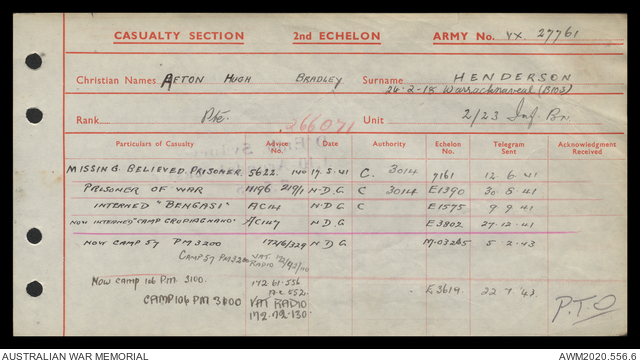 CASUALTY SECTION 2nd ECHELON ARMY No. VX. 27761
Christian Names AFTON HUGH BRADLEY Surname HENDERSON
26-2-18 Warracknabeal
Rank Pte. 266071 Unit 2/23 Inf. Bn.
Particulars of Casualty Advice No. Date Authority Echelon No. Telegram Sent Acknowledgment Received
MISSING BELIEVED PRISONER 5622 140 17.5.41 C. 3014 7161 12 6 41
PRISONER OF WAR 11196 219/1 N.D.G C 3014 E1390 30 8 41
INTERNED "BENGASI" AC14 N.D.G C E1575 9 9 41
NOW INTERNED "CAMP GRUPIAGNANO" AC147 N.D.G. E3802 27.12.41
NOW CAMP 57 PM 3200 172/6/329 N.D.G. M.03265 5.2.43
CAMP 57 PM 3200 VAT. RADIO
NOW CAMP 106 P.M. 3100. 172.61.536 E3619. 22.7.43.
CAMP 106 PM 3100 VAT RADIO
172.72.130.
P.T.O
AUSTRALIAN WAR MEMORIAL AWM2020.556.6